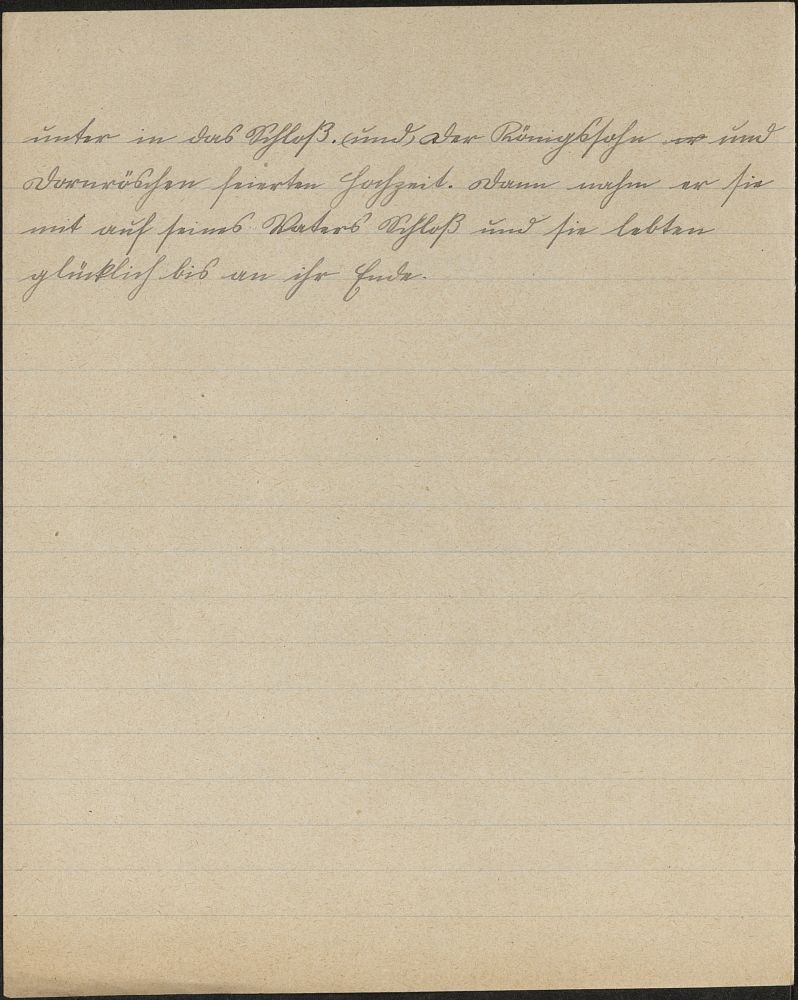 unter in das Schloß. (und) Der Königssohn er und
Dornröschen feierten Hochzeit. Dann nahm er sie
mit auf seines Vaters Schloß und sie lebten
glücklich bis an ihr Ende.